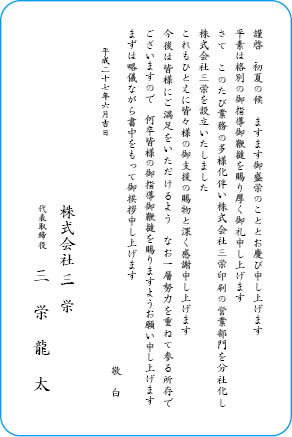 謹啓　初夏の候　ますます御盛栄のこととお慶び申し上げます
平素は格別の御指導御鞭撻を賜り厚く御礼申し上げます
さて　このたび業務の多様化伴い株式会社三栄印刷の営業部門を分社化し
株式会社三栄を設立いたしました
これもひとえに皆々様の御支援の賜物と深く感謝申し上げます
今後は皆様にご満足をいただけるよう　なお一層努力を重ねて参る所存で
ございますので　何卒皆様の御指導御鞭撻を賜りますようお願い申し上げます
まずは略儀ながら書中をもって御挨拶申し上げます
敬白
平成二十七年六月吉日
株式会社三栄
代表取締役　三栄龍太